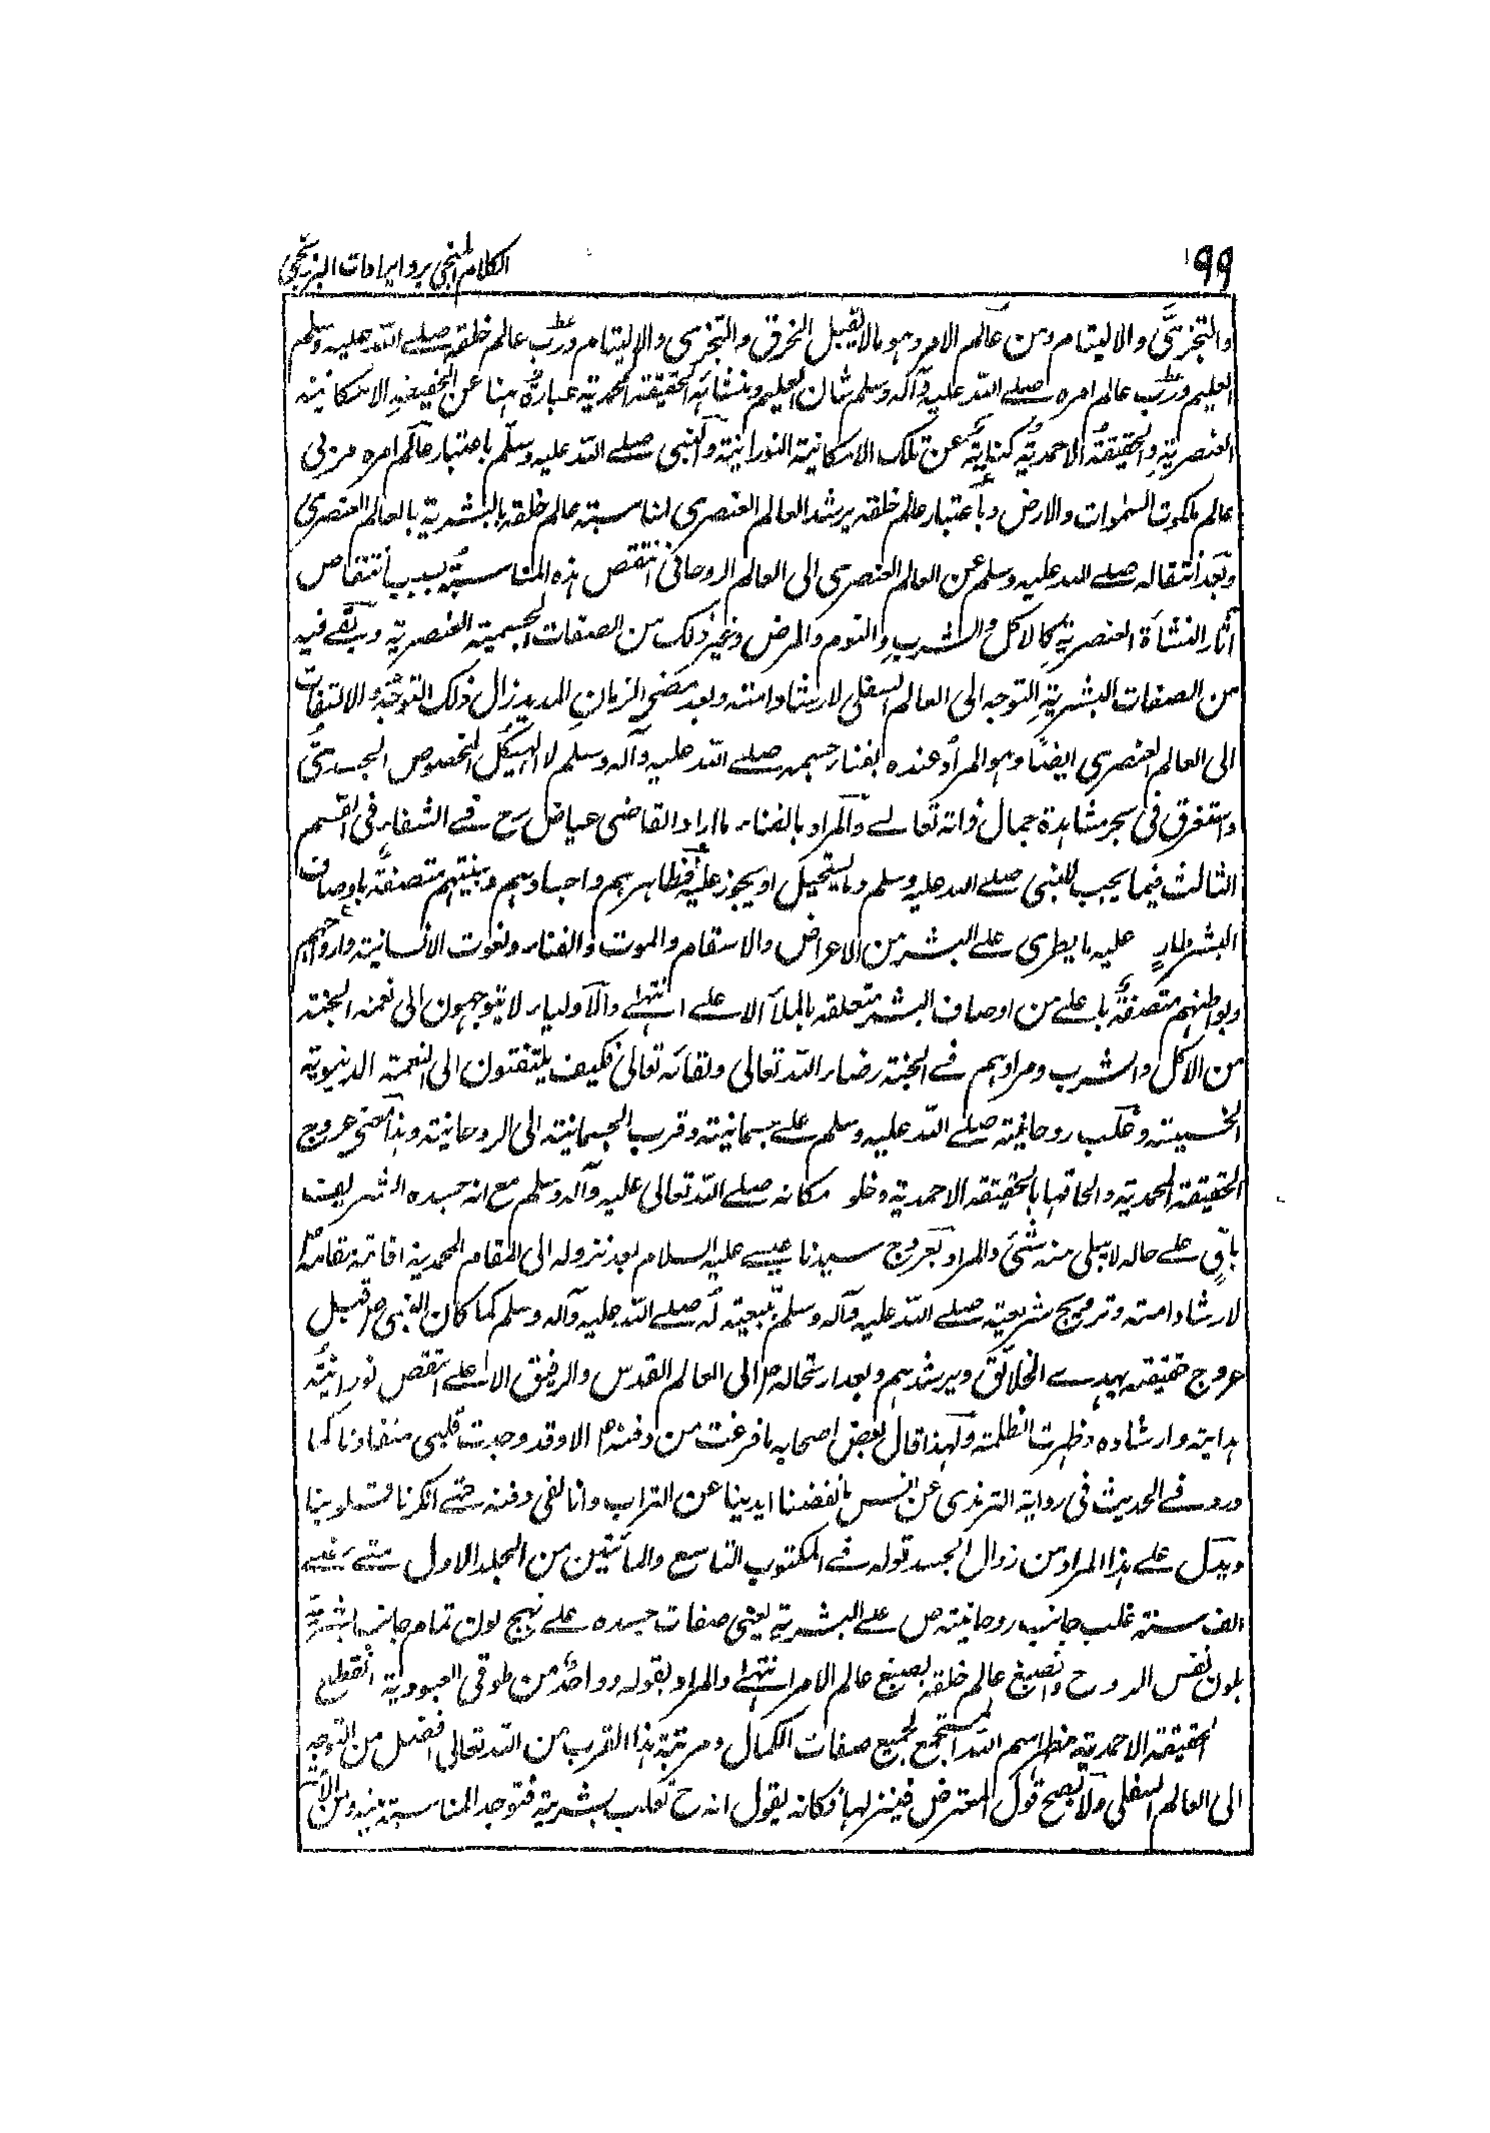 ٩٩
الكلام المنجي برد ايرادات البرزنجي
والتجزي والاليتام ومن عالم الامر وهو مالا يقبل الخرق والتجزى والاليتام ورب عالم خلقه صلے الله عليه وسلم
العليم ورب عالم امره صلے الله عليه وآله وسلم شان العليم ومنشائه الحقيقة المحمدية عبارة هنا عن الحقيقة الامكانية
العنصرية والحقيقة الاحمدية كناية عن تلك الامكانية النورانية والنبى صلے الله عليه وسلم باعتبار عالم امره مربى
عالم ملكوت السموات والارض وباعتبار عالم خلقه يرشد العالم العنصرى لمناسبة عالم خلقه بالبشرية بالعالم العنصرى
وبعد انتقاله صلے الله عليه وسلم عن العالم العنصرى الى العالم الروحانى انتقص هذه المناسبة بسبب انتقاص
آثار النشأة العنصرية كالاكل والشرب والنوم والمرض وغير ذلك من الصفات الجسمية العنصرية وبقے فيه
من الصفات البشرية التوجه الى العالم السفلى لارشاد امته وبعد مضى الزمان المديد زال ذلك التوجه والالتفات
الى العالم العنصرى ايضا وهو المراد عنده بفناء جسمه صلے الله عليه وآله وسلم لا الهيكل المخصوص الجسدى
واستغرق فى بحر مشاهدة جمال ذاته تعالے والمراد بالفناء ما اراد القاضى عياض رح فے الشفاء فى القسم
الثالث فيما يجب للنبى صلے الله عليه وسلم وما يستحيل او يجوز عليه فظاهرهم واجسادهم وبنيتهم متصفة باوصاف
البشر طار عليه ما يطرى علے البشر من الاعراض والاسقام والموت والفناء ونعوت الانسانية وارواحهم
وبواطنهم متصفة باعلے من اوصاف البشر متعلقه بالملأ الاعلے انتهے والاولياء لا يتوجهون الى نعمة الجنة
من الاكل والشرب ومرادهم فے الجنة رضاء الله تعالى ولقائه تعالى فكيف يلتفتون الى النعمة الدنيوية
الخسيسة وغلب روحانيته صلے الله عليه وسلم علے جسمانيته وقرب الجسمانية الى الروحانية وهذا معنى عروج
الحقيقة المحمدية والحاقها بالحقيقة الاحمدية وخلو مكانه صلے الله تعالى عليه وآله وسلم مع انه جسده الشريف
باق علے حاله لا يبلى منه شئ والمراد بعروج سيدنا عيسے عليه السلام بعد نزوله الى المقام المحمدية اقامته مقامه
لارشاد امته وترويج شريعته صلے الله عليه وآله وسلم بتبعيته له صلے الله عليه وآله وسلم كما كان النبى ص قبل
عروج حقيقته يهدے الخلائق ويرشدهم وبعد ارتحاله ص الى العالم القدس والرفيق الاعلے انتقص نورانية
هدايته وارشاده وظهرت الظلمة ولهذا قال بعض اصحابه ما فرغت من دفنه ص الا وقد وجدت قلبى متفاوتا كما
ورد فے الحديث فى رواية الترمذى عن انس ما نفضنا ايدينا عن التراب وانا لفى دفنه حتے انكرنا قلوبنا
ويدل علے هذا المراد من زوال الجسد قوله فے المكتوب التاسع والمأتين من الجلد الاول متے مضے
الف سنة غلب جانب روحانيته ص علے البشرية يعنى صفات جسده علے نهج لون تمام جانب البشرية
بلون نفس الروح وانصبغ عالم خلقه بصبغ عالم الامر انتهے والمراد بقوله وواحد من طوقى العبودية انقطع
الحقيقة الاحمدية مظهر اسم الله المستجمع لجميع صفات الكمال ومرتبة هذا القرب من الله تعالى افضل من التوجه
الى العالم السفلى ولا يصح قول المعترض فينزلها فكانه يقول انه ح تغلب بشرية فتوجد المناسبة